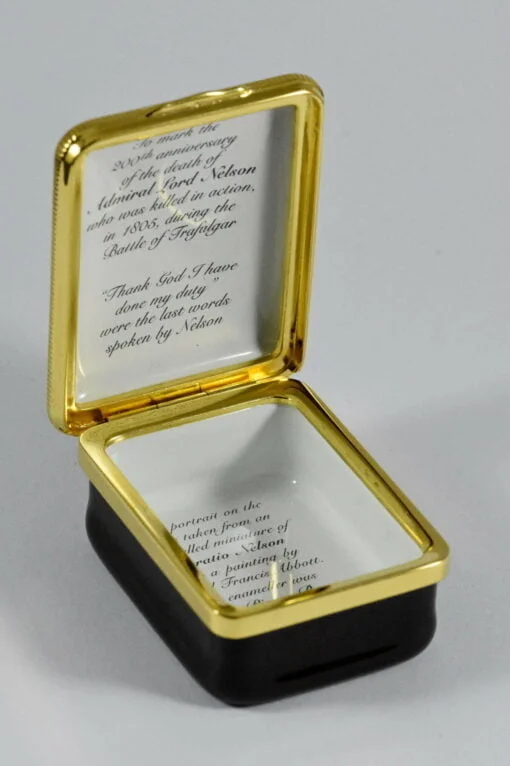 To mark the
200th anniversary
of the death of
Admiral Lord Nelson
who was killed in action,
in 1805, during the
Battle of Trafalgar
"Thank God I have
done my duty"
were the last words
spoken by Nelson
portrait on the
taken from an
lled miniature of
ratio Nelson
a painting by
Francis Abbott.
enameller was